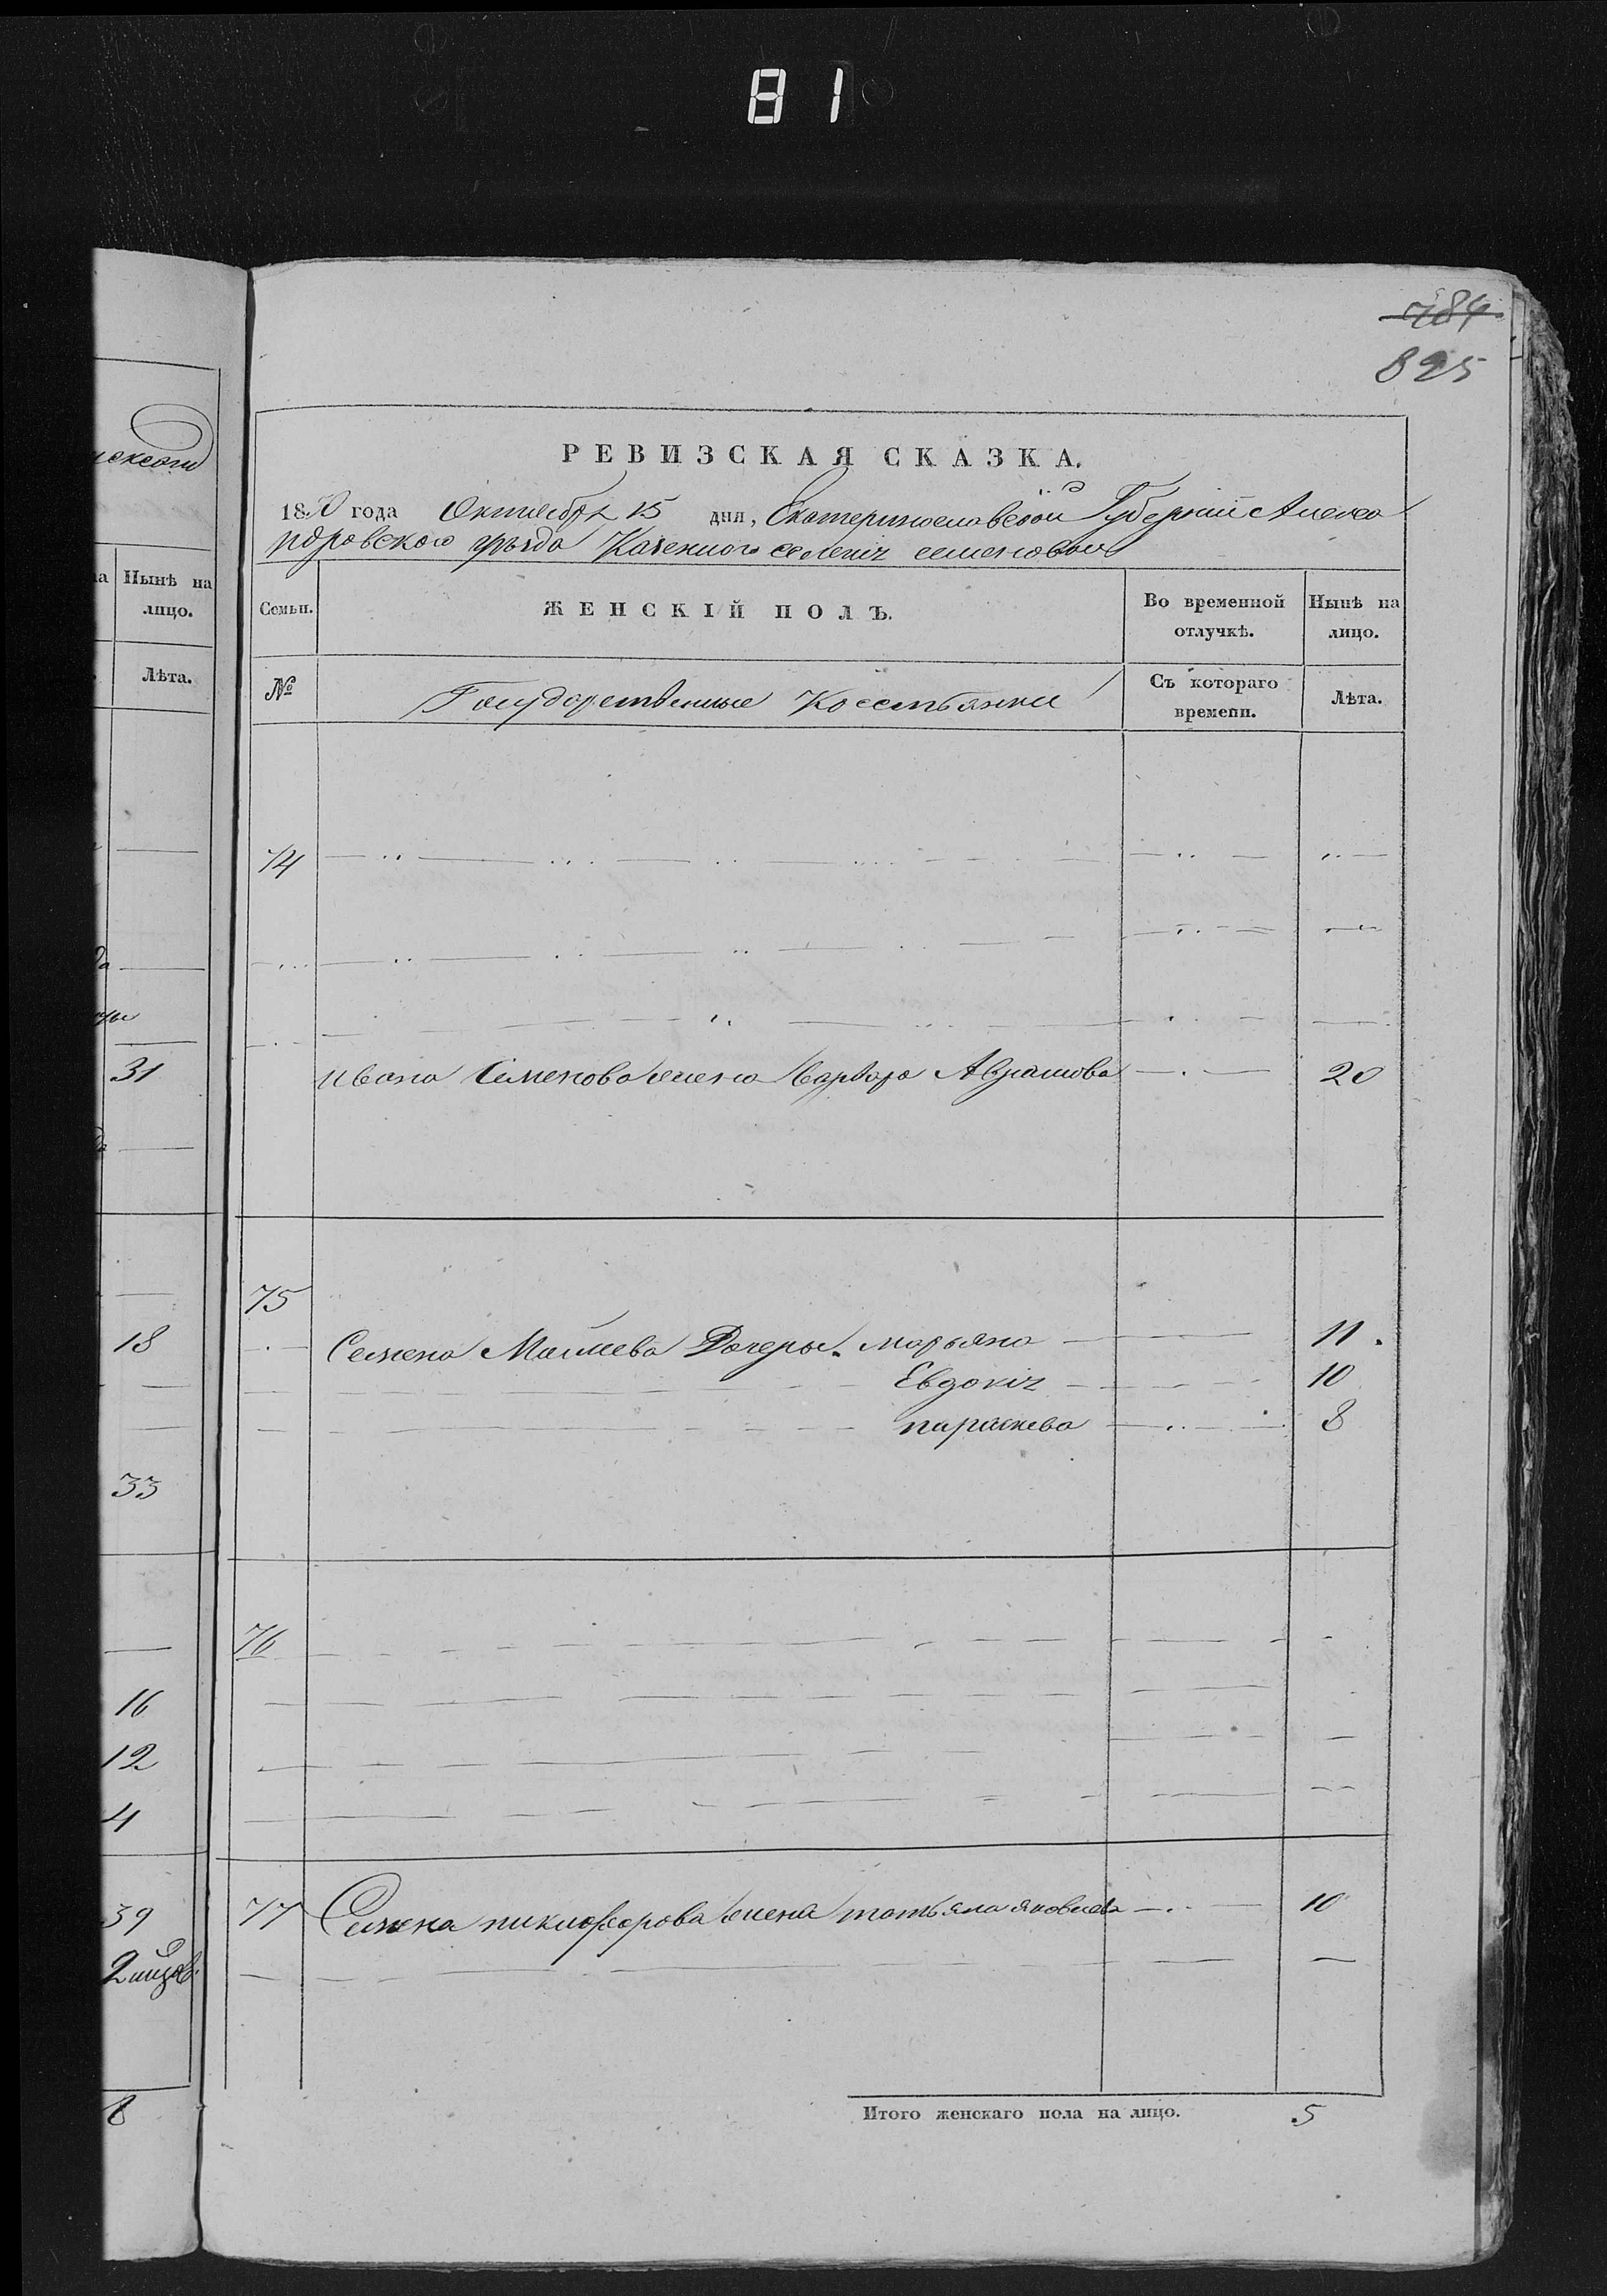 81
784
825
искаго
РЕВИЗСКАЯ СКАЗКА.
1850 года Октября 15 дня, Екатеринославской Губернии Алекса
ндровского уѣзда Казенного селения семеновки
Нынѣ на лицо.
Лѣта.
Семьи. ЖЕНСКІЙ ПОЛЪ. Во временной отлучкѣ. Нынѣ на лицо.
№ Государственные Кресстьянки Съ котораго времени. Лѣта.
74
31
ивана Семенова жена варвара Аврамова 20
75
18
Семена Дочеры. марьяна 11.
Евдокия 10
параскева 8
33
76
16
12
4
39
77 Семена никифорова жена татьяна яковлева 10
2
8
Итого женскаго пола на лицо. 5